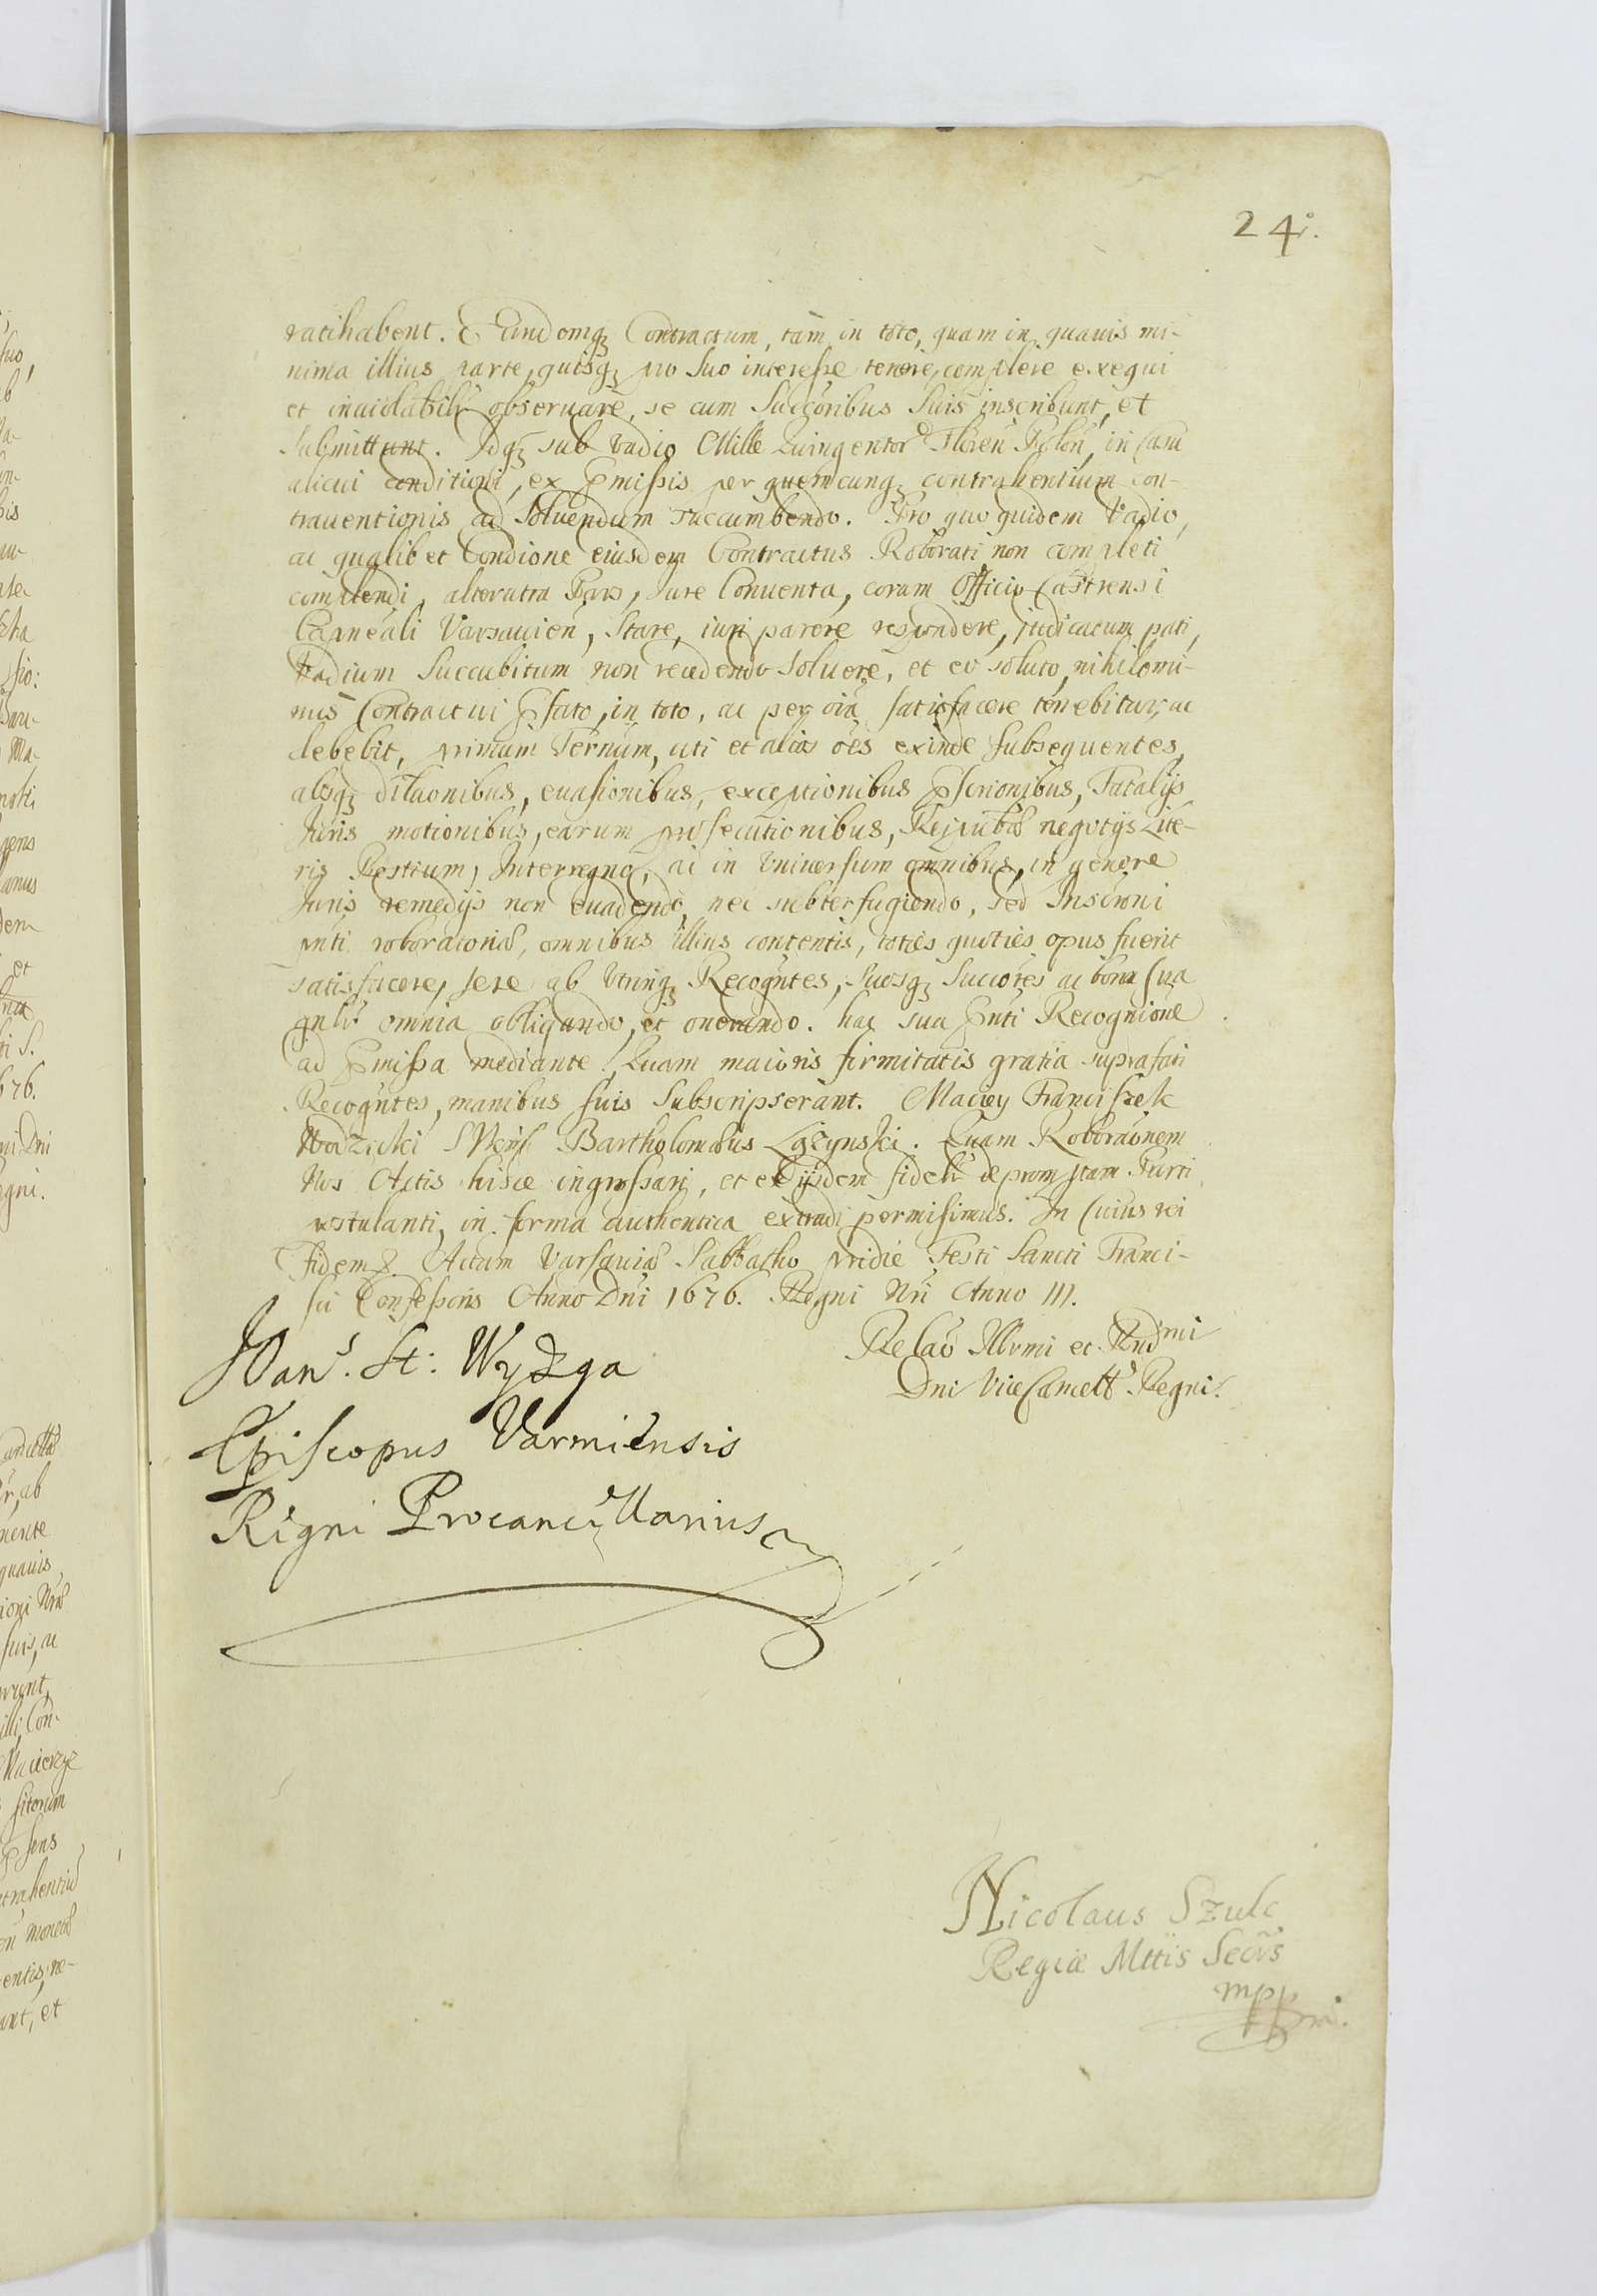 24.
ratihabent. Eundemq; Contractum, tàm in toto, quam in quavis mi-
nima illius parte, quisq; pro suo interesse tenere, complere exequi
et inuiolabilr observare, se cum Succoribus suis inscribunt, et
submittunt. Idq; sub vadio Mille Quingentor Floren Polon, in casu
alicui conditioni, ex pmissis per quemcunq; contrahentium con-
traventionis ad soluendum succumbendo. Pro quo quidem Vadio,
ac qualibet Condione eiusdem Contractus Roborati non completi
complendi, alterutra Pars, Jure Conventa, coram Officio Castrensi
Capneali Varsavien, Stare, iuri parere respondere, judicatum pati,
Vadium succubitum non recedendo soluere, et eo soluto, nihilomi-
nus Contractui pfato, in toto, ac per oia satisfacere tenebitur, ac
debebit, primum Ternum, uti et alios oes exinde subsequentes,
absq; dilaonibus, euasionibus, exceptionibus pscrionibus, Fatalijs
Juris motionibus, earum prosecutionibus, Reipubcae negotijs Lite-
ris Restium, Interregno, ac in Vniversum omnibus, in genere
Juris remedijs non euadendo, nec subterfugiendo, sed Inscrioni
pnti roboratoriae, omnibus illius contentis, toties quoties opus fuerit
satisfacere, sese ab Vtrinq; Recogntes, suosq; Succores ac bona sua
gnlr omnia obligando, et onerando. hac sua pnti Recognione
ad pmissa mediante. Quam maioris firmitatis gratia suprafati
Recogntes, manibus suis subscripserant. Maciey Franciszek
Wodzicki Bartholomaeus Łączynski. Quam Roboraonem
Nos Actis hisce ingrossari, et ex ijsdem fidelr depromptam Parti
postulanti, in forma authentica extradi permisimus. In Cuius rei
fidem &. Actum Varsaviae Sabbatho pridie Festi Sancti Franci-
sci Confessoris Anno Dni 1676. Regni Nri Anno III.
Relaō Illrmi et Rndmi
Dni ViceCancell. Regni.
Joan. St: Wydzga
Episcopus Varmiensis
Regni Procancellarius
Nicolaus Szulc
Regiae Mttis Secrs
mpp